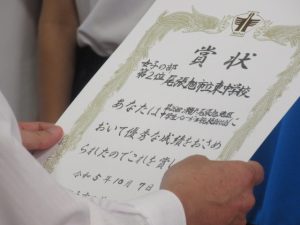 賞状
女子の部
第2位 尾張旭市立東中学校
あなたは
おいて優秀な成績をおさめ
られたのでこれを賞し
令和5年10月7日